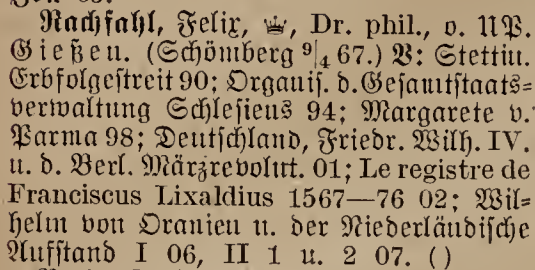 Rachfahl, Felix, ♛, Dr. phil., o. UP.
Gießen. (Schömberg 9/4 67.) V: Stettin.
Erbfolgestreit 90; Organis. d. Gesamtstaats-
verwaltung Schlesiens 94; Margarete v.
Parma 98; Deutschland, Friedr. Wilh. IV.
u. d. Berl. Märzrevolut. 01; Le registre de
Franciscus Lixaldius 1567—76 02; Wil-
helm von Oranien u. der Niederländische
Aufstand I 06, II 1 u. 2 07. ()